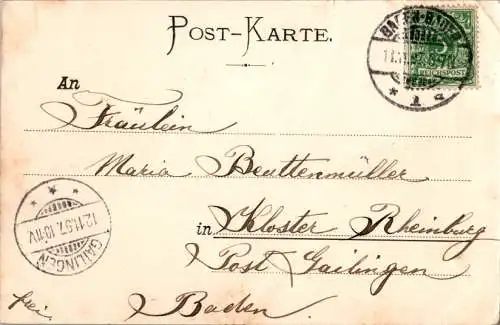 POST-KARTE.
BADEN-BADEN
REICHSPOST
An
Fräulein
Maria Beuttenmüller
in Kloster Rheinburg
Post Gailingen
Baden
frei
12.11.97.10-11V.
GAILINGEN